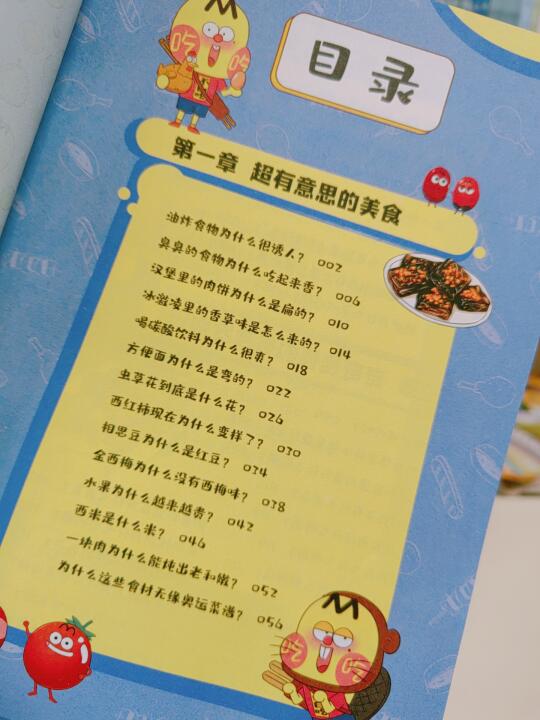 目录
吃 吃
第一章 超有意思的美食
油炸食物为什么很诱人? 002
臭臭的食物为什么吃起来香? 006
汉堡里的肉饼为什么是扁的? 010
冰激凌里的香草味是怎么来的? 014
喝碳酸饮料为什么很爽? 018
方便面为什么是弯的? 022
虫草花到底是什么花? 026
西红柿现在为什么变样了? 030
相思豆为什么是红豆? 034
全西梅为什么没有西梅味? 038
水果为什么越来越贵? 042
西米是什么米? 046
一块肉为什么能炖出老和嫩? 052
为什么这些食材无缘奥运菜谱? 056
吃 吃